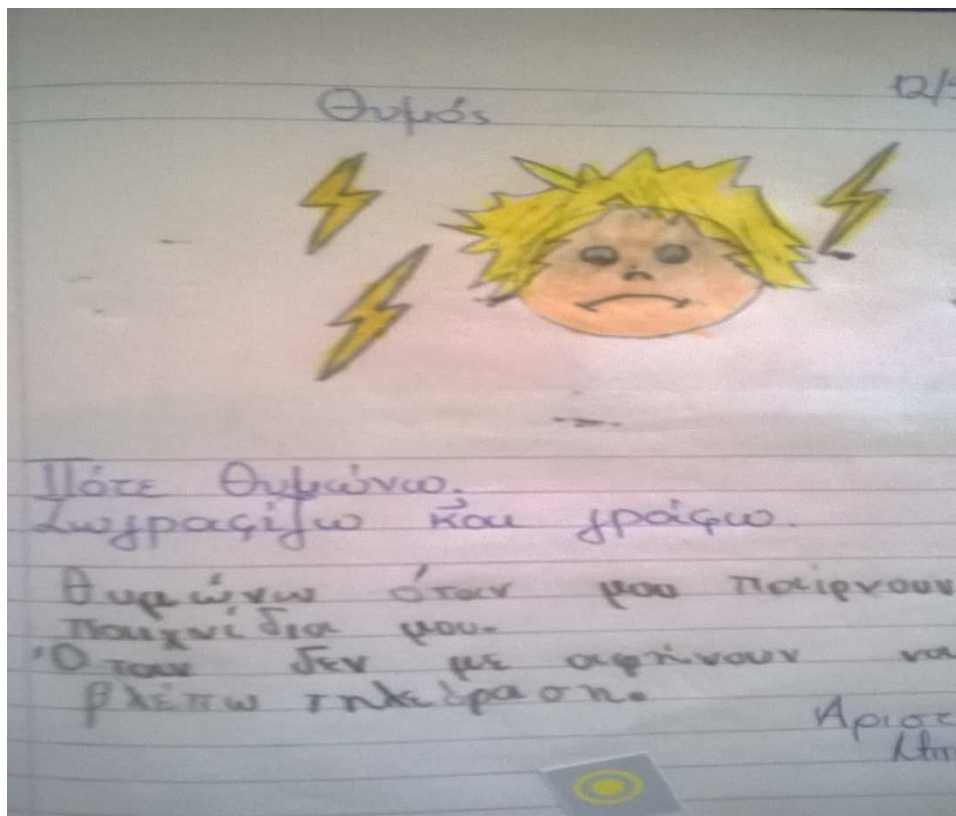 12/
Θυμός
Πότε θυμώνω.
Ζωγραφίζω και γράφω.
θυμώνω όταν μου παίρνουν
παιχνίδια μου.
Όταν δεν με αφήνουν να
βλέπω τηλεέραση.
Αριστ